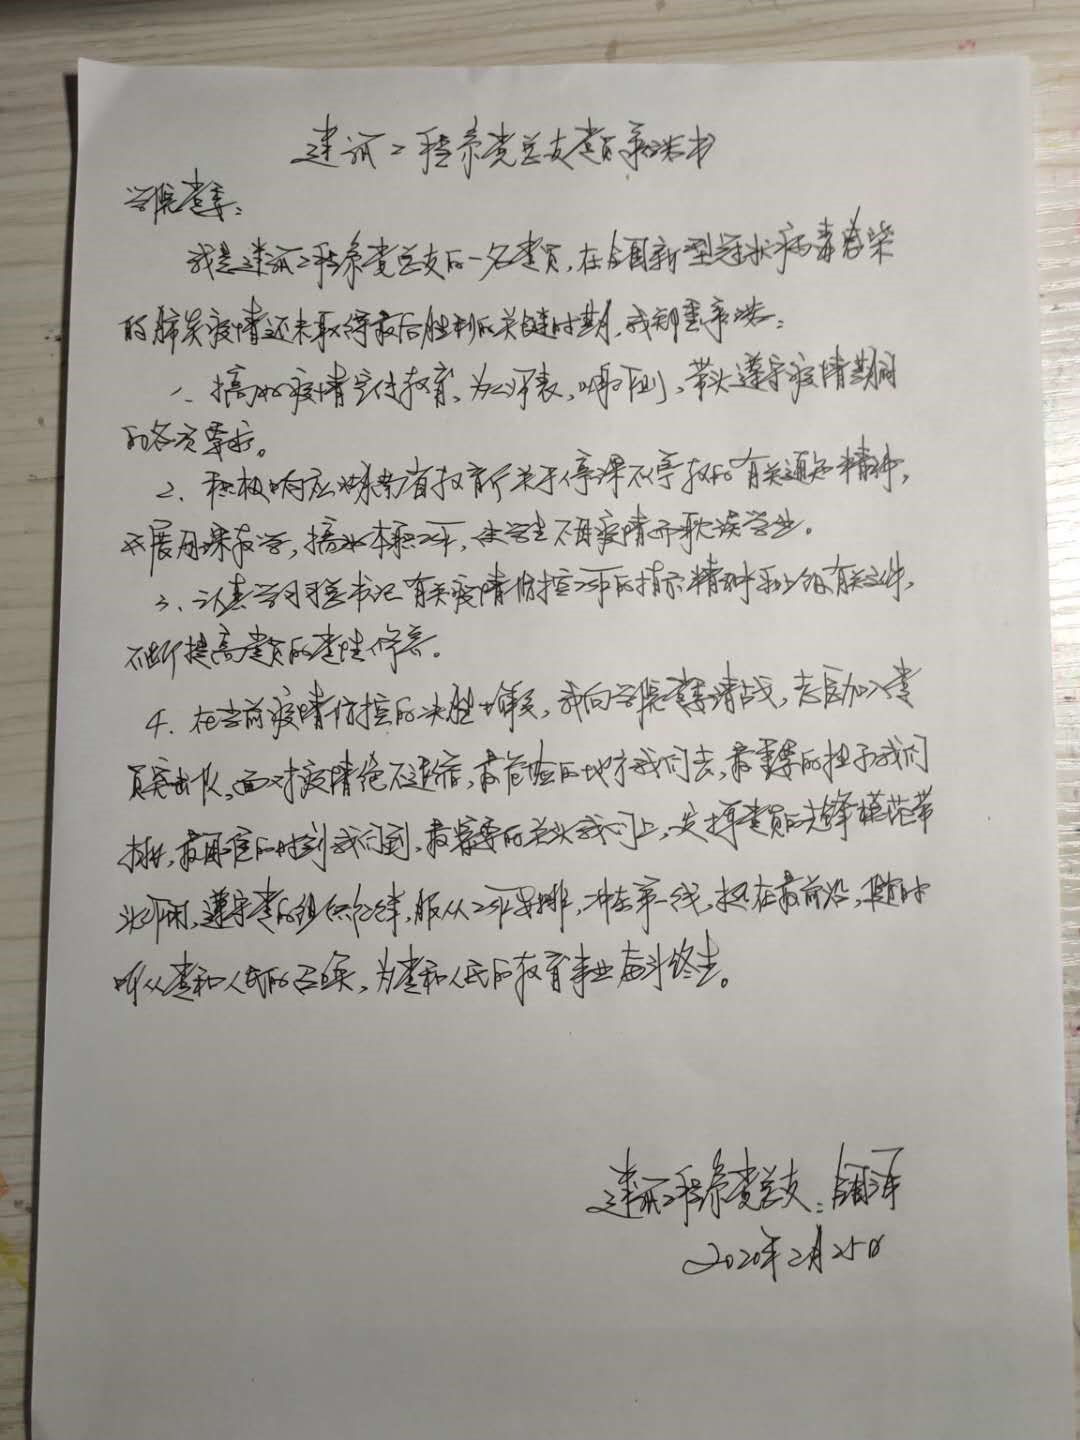 建筑工程系党总支党员承诺书
学院党委：
我是建筑工程系党总支的一名党员，在全国新型冠状病毒感染
的肺炎疫情还未取得最后胜利的关键时期，我郑重承诺：
1、搞好疫情宣传教育，为人师表，以身作则，带头遵守疫情期间
的各项要求。
2、积极响应湖南省教育厅关于停课不停教的有关通知精神，
开展网课教学，搞好本职工作，使学生不因疫情而耽误学业。
3、认真学习习总书记有关疫情防控工作的指示精神和上级有关文件，
不断提高党员的党性修养。
4、在当前疫情防控的决胜时候，我向学院党委请战，志愿加入党
员突击队，面对疫情绝不退缩，最危险的地方我们去，最重要的担子我们
挑，最困难的时刻我们到，最紧要的关头我们上，发挥党员的先锋模范带
头作用，遵守党的组织纪律，服从工作安排，冲在第一线，战在最前沿，随时
听从党和人民的召唤，为党和人民的教育事业奋斗终生。
建筑工程系党总支：
2020年2月25日